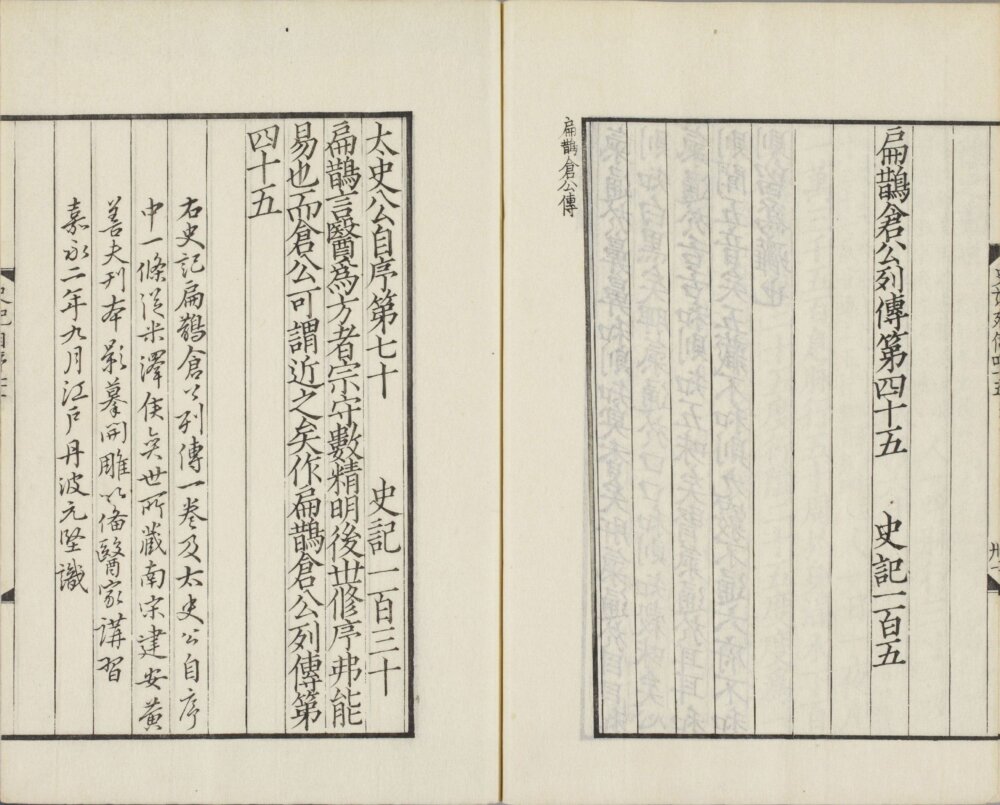 扁鵲倉公列傳第四十五　史記一百五
扁鵲倉公傳
太史公自序第七十　史記一百三十
扁鵲言醫爲方者宗守數精明後世修序弗能
易也而倉公可謂近之矣作扁鵲倉公列傳第
四十五
右史記扁鵲倉公列傳一卷及太史公自序
中一條從米澤侯奕世所藏南宋建安黃
善夫刊本影摹開雕以備醫家講習
嘉永二年九月江戶丹波元堅識